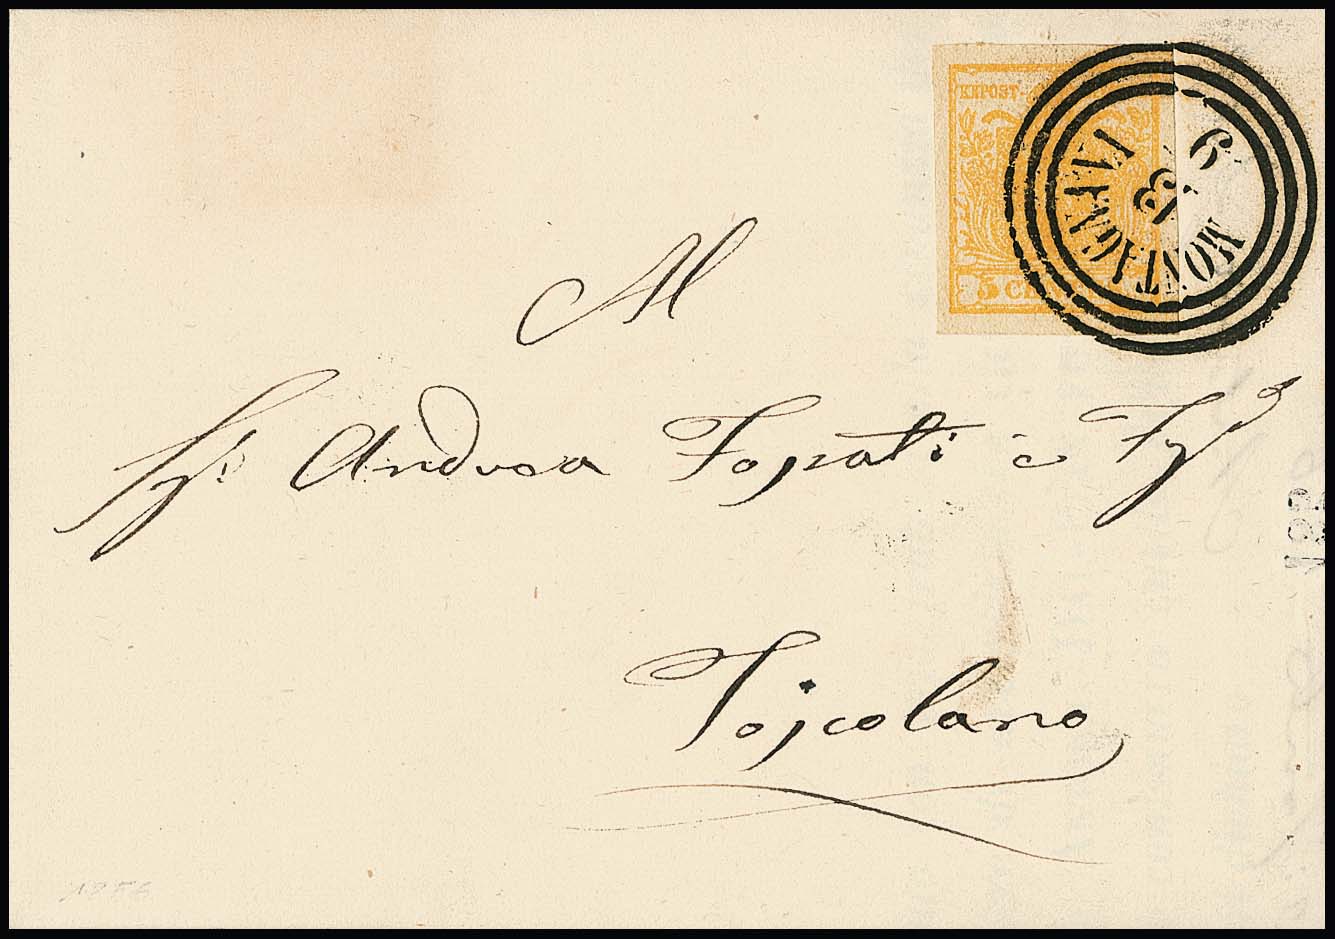 KKPOST-
5 CEN
MONTAGNAVI
6
Al
Sig.r Andrea Fossati e Fg.l
Toscolano
1856